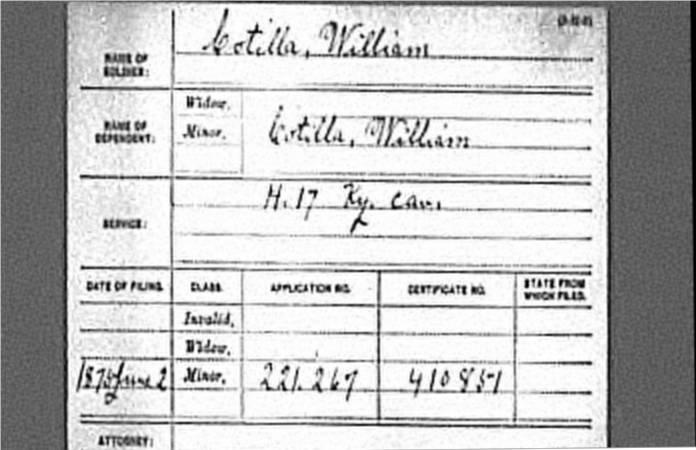 Cotilla, William
NAME OF
SOLDIER:
Widow,
NAME OF
DEPENDENT:
Minor, Cotilla, William
H. 17 Ky. Cav.
SERVICE:
DATE OF FILING. CLASS. APPLICATION NO. CERTIFICATE NO. STATE FROM
WHICH FILED.
Invalid,
Widow,
1875 June 2 Minor, 221.267 410851
ATTORNEY: